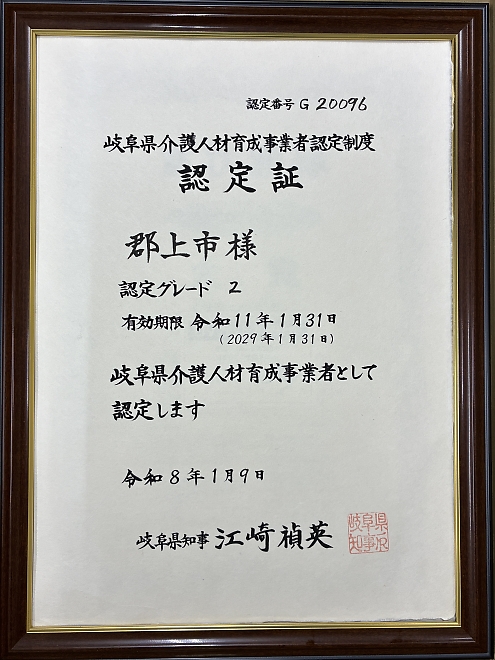 認定番号 G 20096
岐阜県介護人材育成事業者認定制度
認定証
郡上市様
認定グレード 2
有効期限 令和11年1月31日
(2029年1月31日)
岐阜県介護人材育成事業者として
認定します
令和8年1月9日
岐阜県知事 江崎禎英
岐阜県知事之印